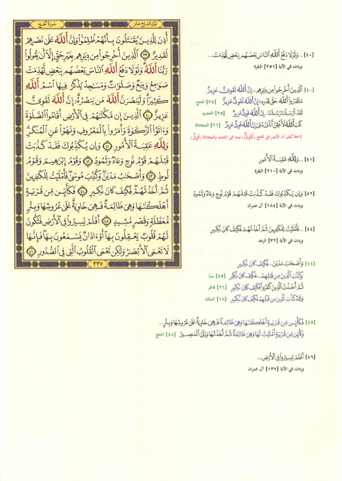 سورة الحج
أُذِنَ لِلَّذِينَ يُقَٰتَلُونَ بِأَنَّهُمْ ظُلِمُوا۟ وَإِنَّ ٱللَّهَ عَلَىٰ نَصْرِهِمْ
لَقَدِيرٌ ٣٩ ٱلَّذِينَ أُخْرِجُوا۟ مِن دِيَٰرِهِم بِغَيْرِ حَقٍّ إِلَّآ أَن يَقُولُوا۟
رَبُّنَا ٱللَّهُ وَلَوْلَا دَفْعُ ٱللَّهِ ٱلنَّاسَ بَعْضَهُم بِبَعْضٍ لَّهُدِّمَتْ
صَوَٰمِعُ وَبِيَعٌ وَصَلَوَٰتٌ وَمَسَٰجِدُ يُذْكَرُ فِيهَا ٱسْمُ ٱللَّهِ
كَثِيرًا وَلَيَنصُرَنَّ ٱللَّهُ مَن يَنصُرُهُۥٓ إِنَّ ٱللَّهَ لَقَوِىٌّ
عَزِيزٌ ٤٠ ٱلَّذِينَ إِن مَّكَّنَّٰهُمْ فِى ٱلْأَرْضِ أَقَامُوا۟ ٱلصَّلَوٰةَ
وَءَاتَوُا۟ ٱلزَّكَوٰةَ وَأَمَرُوا۟ بِٱلْمَعْرُوفِ وَنَهَوْا۟ عَنِ ٱلْمُنكَرِ
وَلِلَّهِ عَٰقِبَةُ ٱلْأُمُورِ ٤١ وَإِن يُكَذِّبُوكَ فَقَدْ كَذَّبَتْ
قَبْلَهُمْ قَوْمُ نُوحٍ وَعَادٌ وَثَمُودُ ٤٢ وَقَوْمُ إِبْرَٰهِيمَ وَقَوْمُ
لُوطٍ ٤٣ وَأَصْحَٰبُ مَدْيَنَ وَكُذِّبَ مُوسَىٰ فَأَمْلَيْتُ لِلْكَٰفِرِينَ
ثُمَّ أَخَذْتُهُمْ فَكَيْفَ كَانَ نَكِيرِ ٤٤ فَكَأَيِّن مِّن قَرْيَةٍ
أَهْلَكْنَٰهَا وَهِىَ ظَالِمَةٌ فَهِىَ خَاوِيَةٌ عَلَىٰ عُرُوشِهَا وَبِئْرٍ
مُّعَطَّلَةٍ وَقَصْرٍ مَّشِيدٍ ٤٥ أَفَلَمْ يَسِيرُوا۟ فِى ٱلْأَرْضِ فَتَكُونَ
لَهُمْ قُلُوبٌ يَعْقِلُونَ بِهَآ أَوْ ءَاذَانٌ يَسْمَعُونَ بِهَا فَإِنَّهَا
لَا تَعْمَى ٱلْأَبْصَٰرُ وَلَٰكِن تَعْمَى ٱلْقُلُوبُ ٱلَّتِى فِى ٱلصُّدُورِ ٤٦
٣٣٧
[٤٠]... وَلَوْلَا دَفْعُ ٱللَّهِ ٱلنَّاسَ بَعْضَهُم بِبَعْضٍ لَّهُدِّمَتْ...
وردت في الآية [٢٥١] البقرة
[٤٠] ٱلَّذِينَ أُخْرِجُوا۟ مِن دِيَٰرِهِم... إِنَّ ٱللَّهَ لَقَوِىٌّ عَزِيزٌ
مَا قَدَرُوا۟ ٱللَّهَ حَقَّ قَدْرِهِۦٓ إِنَّ ٱللَّهَ لَقَوِىٌّ عَزِيزٌ [٧٤] الحج
لَقَدْ أَرْسَلْنَا رُسُلَنَا... إِنَّ ٱللَّهَ قَوِىٌّ عَزِيزٌ [٢٥] الحديد
كَتَبَ ٱللَّهُ لَأَغْلِبَنَّ أَنَا۠ وَرُسُلِىٓ إِنَّ ٱللَّهَ قَوِىٌّ عَزِيزٌ [٢١] المجادلة
[٤١]... وَلِلَّهِ عَٰقِبَةُ ٱلْأُمُورِ
[٤٢] وَإِن يُكَذِّبُوكَ فَقَدْ كَذَّبَتْ قَبْلَهُمْ قَوْمُ نُوحٍ وَعَادٌ وَثَمُودُ
وردت في الآية [١٨٤] آل عمران
[٤٤]... فَأَمْلَيْتُ لِلْكَٰفِرِينَ ثُمَّ أَخَذْتُهُمْ فَكَيْفَ كَانَ نَكِيرِ
وردت في الآية [٣٢] الرعد
[٤٤] وَأَصْحَٰبُ مَدْيَنَ... فَكَيْفَ كَانَ نَكِيرِ
وَكَذَّبَ ٱلَّذِينَ مِن قَبْلِهِمْ... فَكَيْفَ كَانَ نَكِيرِ [٤٥] سبأ
ثُمَّ أَخَذْتُ ٱلَّذِينَ كَفَرُوا۟ فَكَيْفَ كَانَ نَكِيرِ [٢٦] فاطر
وَلَقَدْ كَذَّبَ ٱلَّذِينَ مِن قَبْلِهِمْ فَكَيْفَ كَانَ نَكِيرِ [١٨] الملك
[٤٥] فَكَأَيِّن مِّن قَرْيَةٍ أَهْلَكْنَٰهَا وَهِىَ ظَالِمَةٌ فَهِىَ خَاوِيَةٌ عَلَىٰ عُرُوشِهَا وَبِئْرٍ...
وَكَأَيِّن مِّن قَرْيَةٍ أَمْلَيْتُ لَهَا وَهِىَ ظَالِمَةٌ ثُمَّ أَخَذْتُهَا وَإِلَىَّ ٱلْمَصِيرُ [٤٨] الحج
[٤٦] أَفَلَمْ يَسِيرُوا۟ فِى ٱلْأَرْضِ...
وردت في الآية [١٣٧] آل عمران